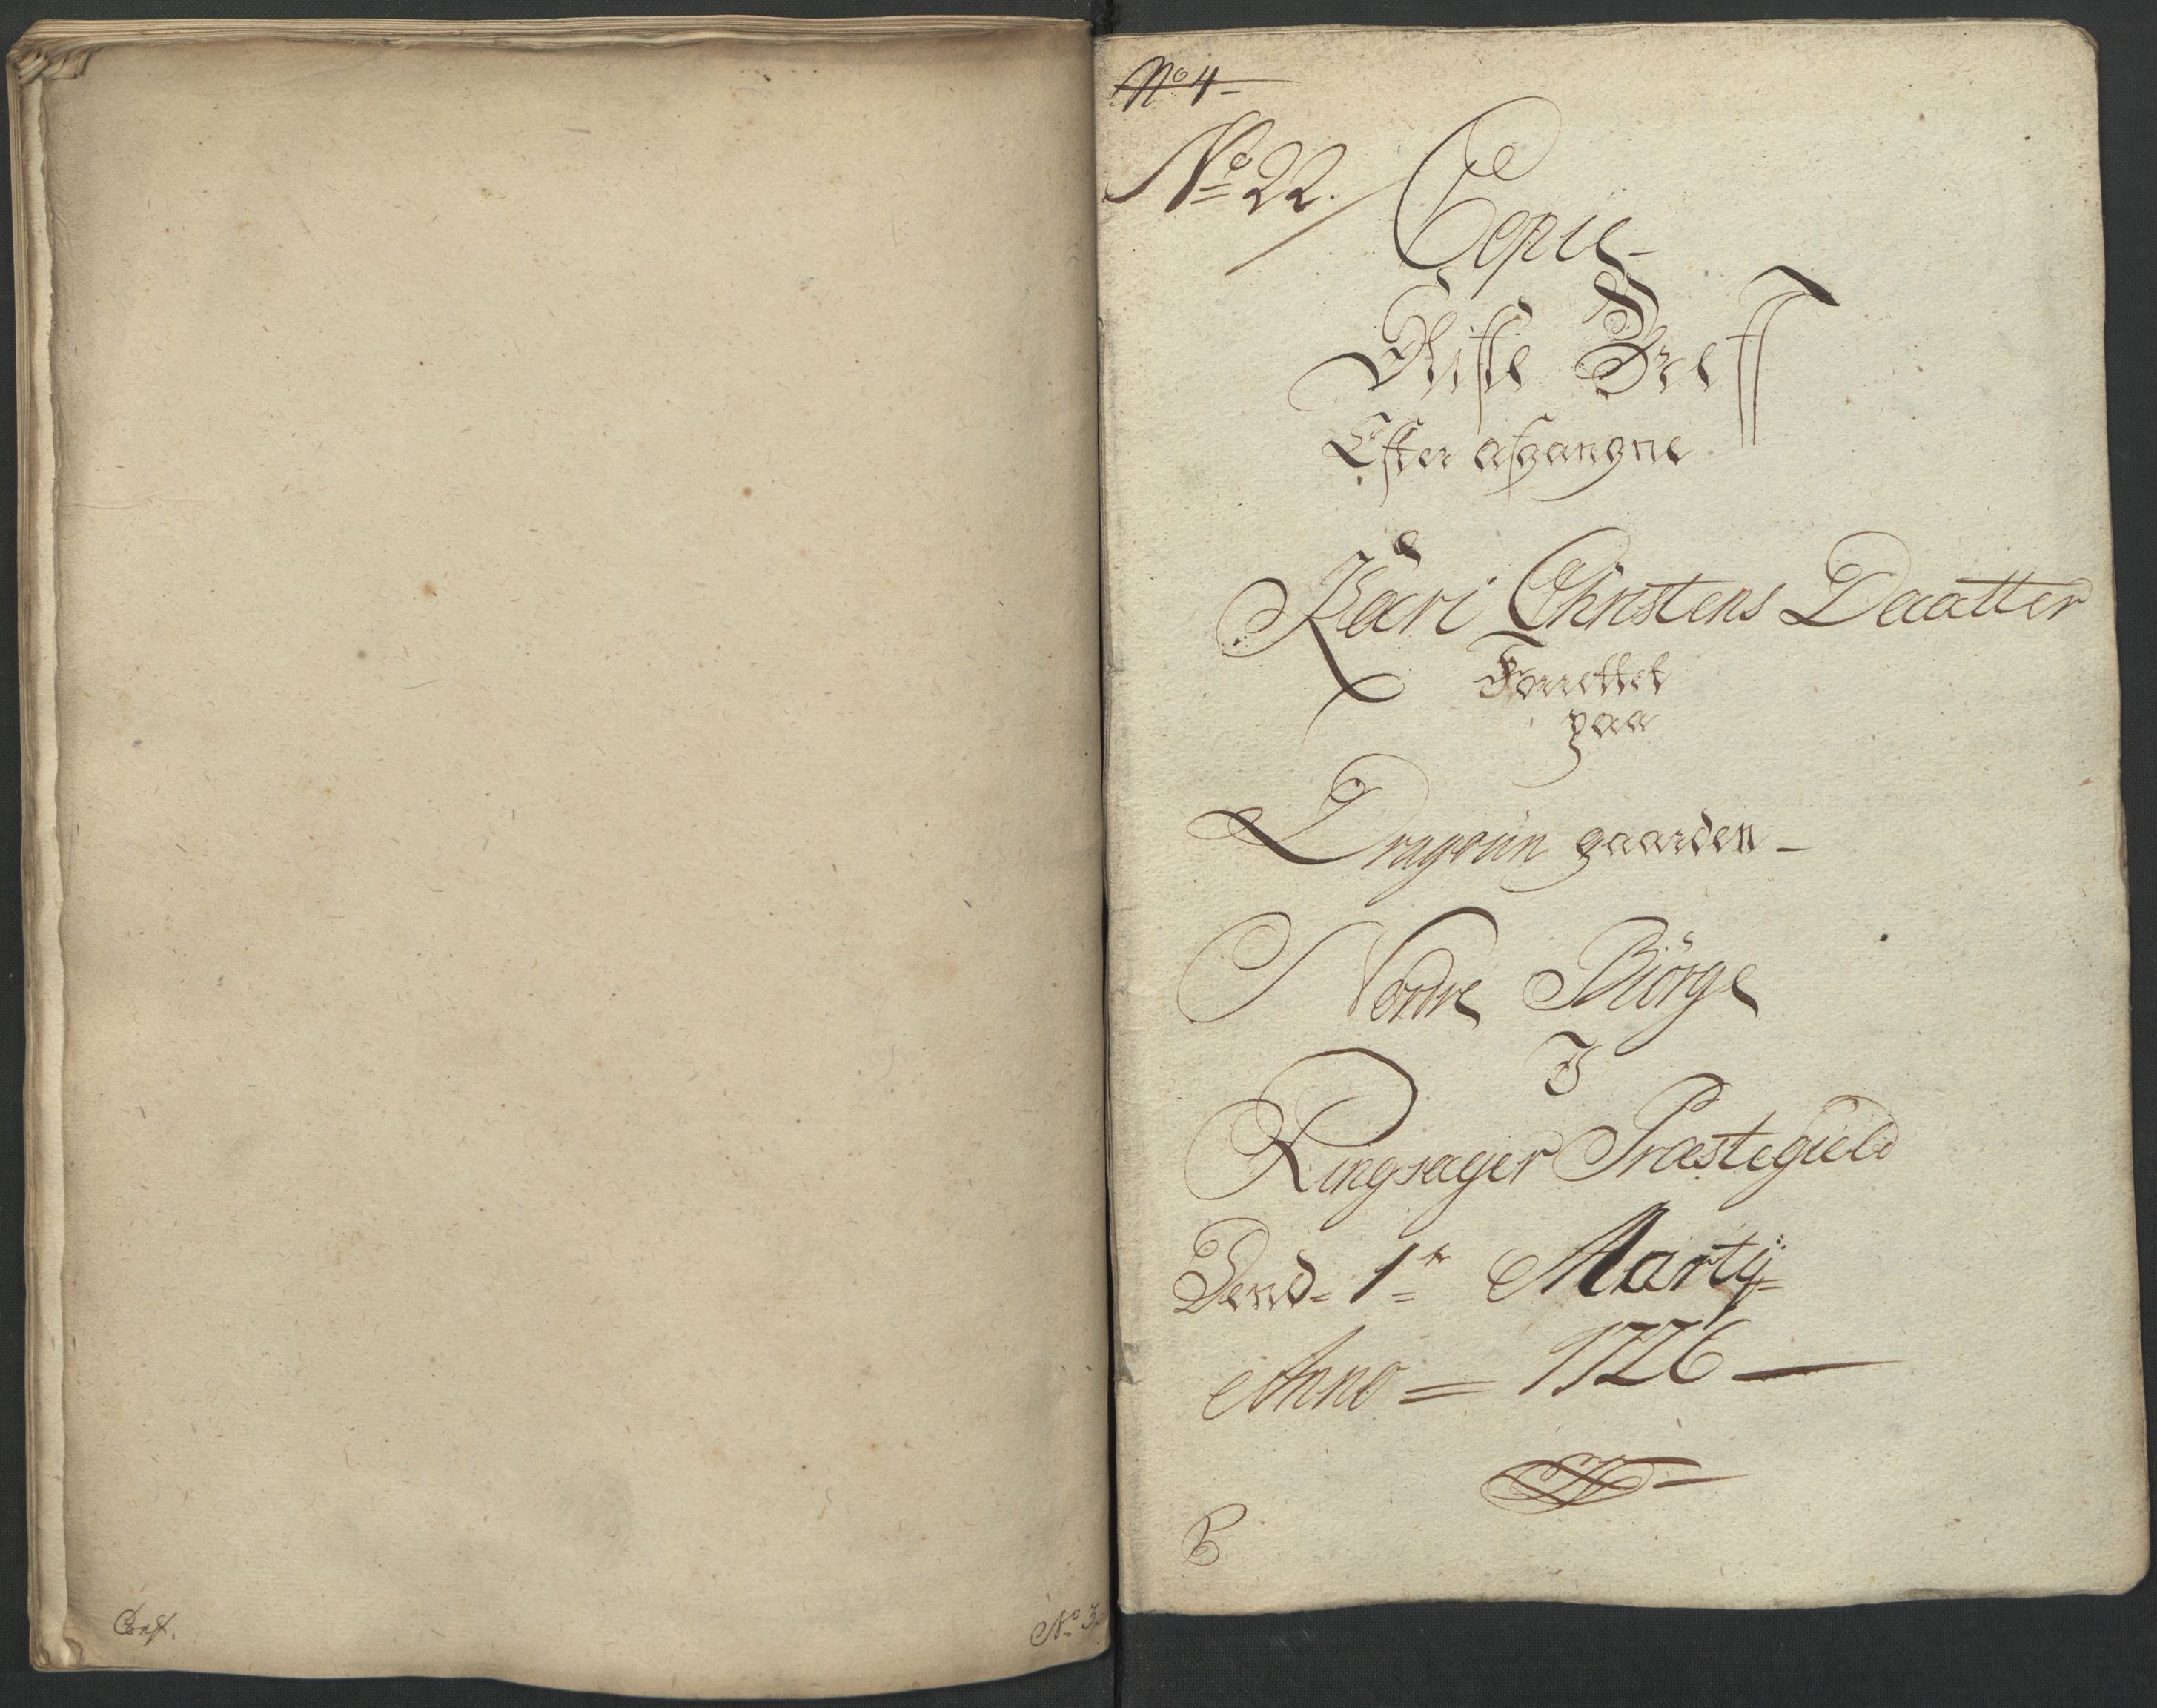 Conf.
No 3.
No 4
No 22.
Copie
Skifte Breff
Efter afgangne
Kari Christens Daatter
Forrettet
paa
Dragoun gaarden
Nordre Biörge
I
Ringsager Præstegield
Dend 1te Marty
Anno 1726